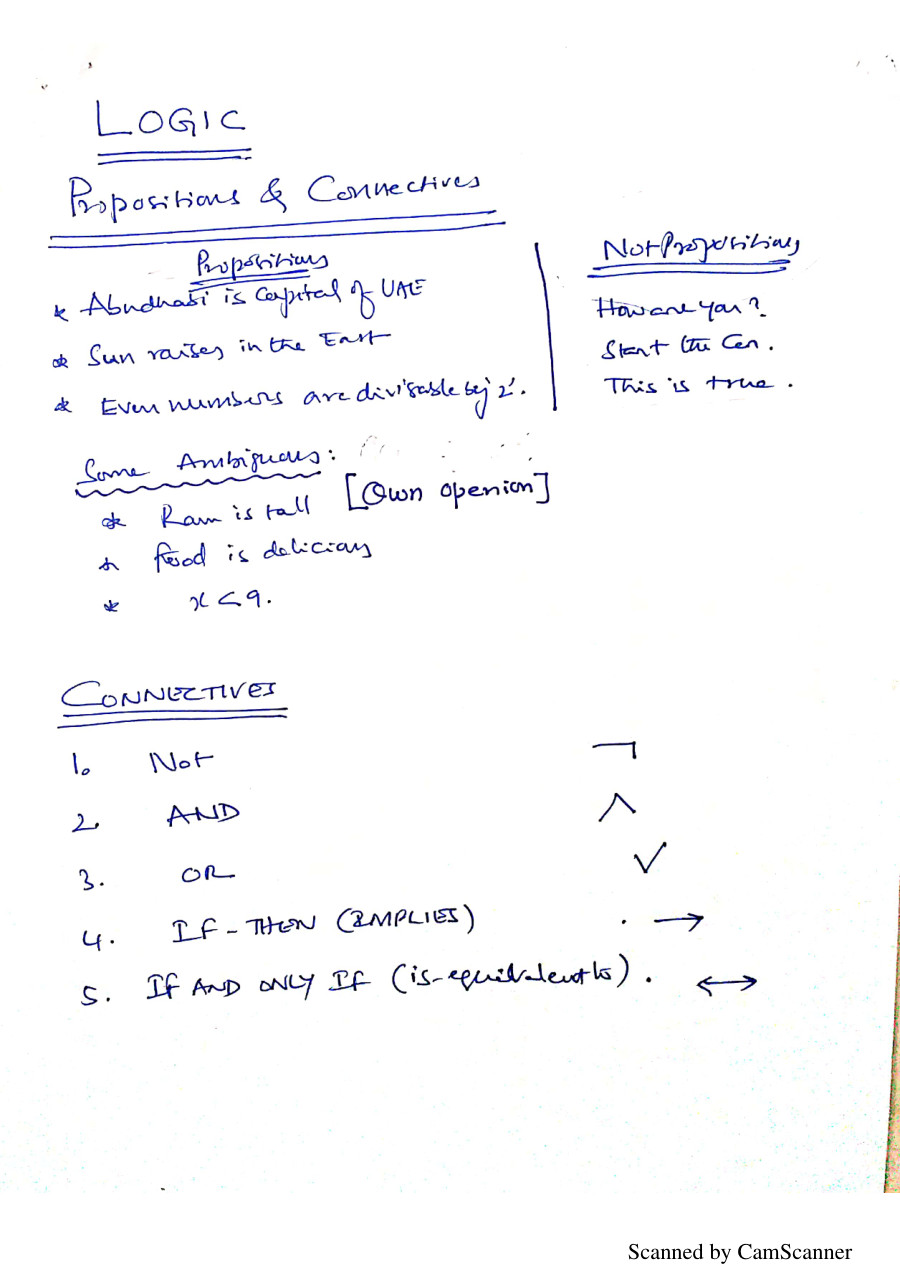 LOGIC
Propositions & Connectives
Propositions
* Abudhabi is Capital of UAE
* Sun raises in the East
* Even numbers are divisable by '2'.
Not Propositions
How are you?
Start the Car.
This is true.
Some Ambiguous:
* Ram is tall [Own openion]
* food is delicious
* x < 9.
CONNECTIVES
1. Not ¬
2. AND ∧
3. OR ∨
4. IF-THEN (IMPLIES) . →
5. If AND ONLY IF (is-equivalent to). ↔
Scanned by CamScanner